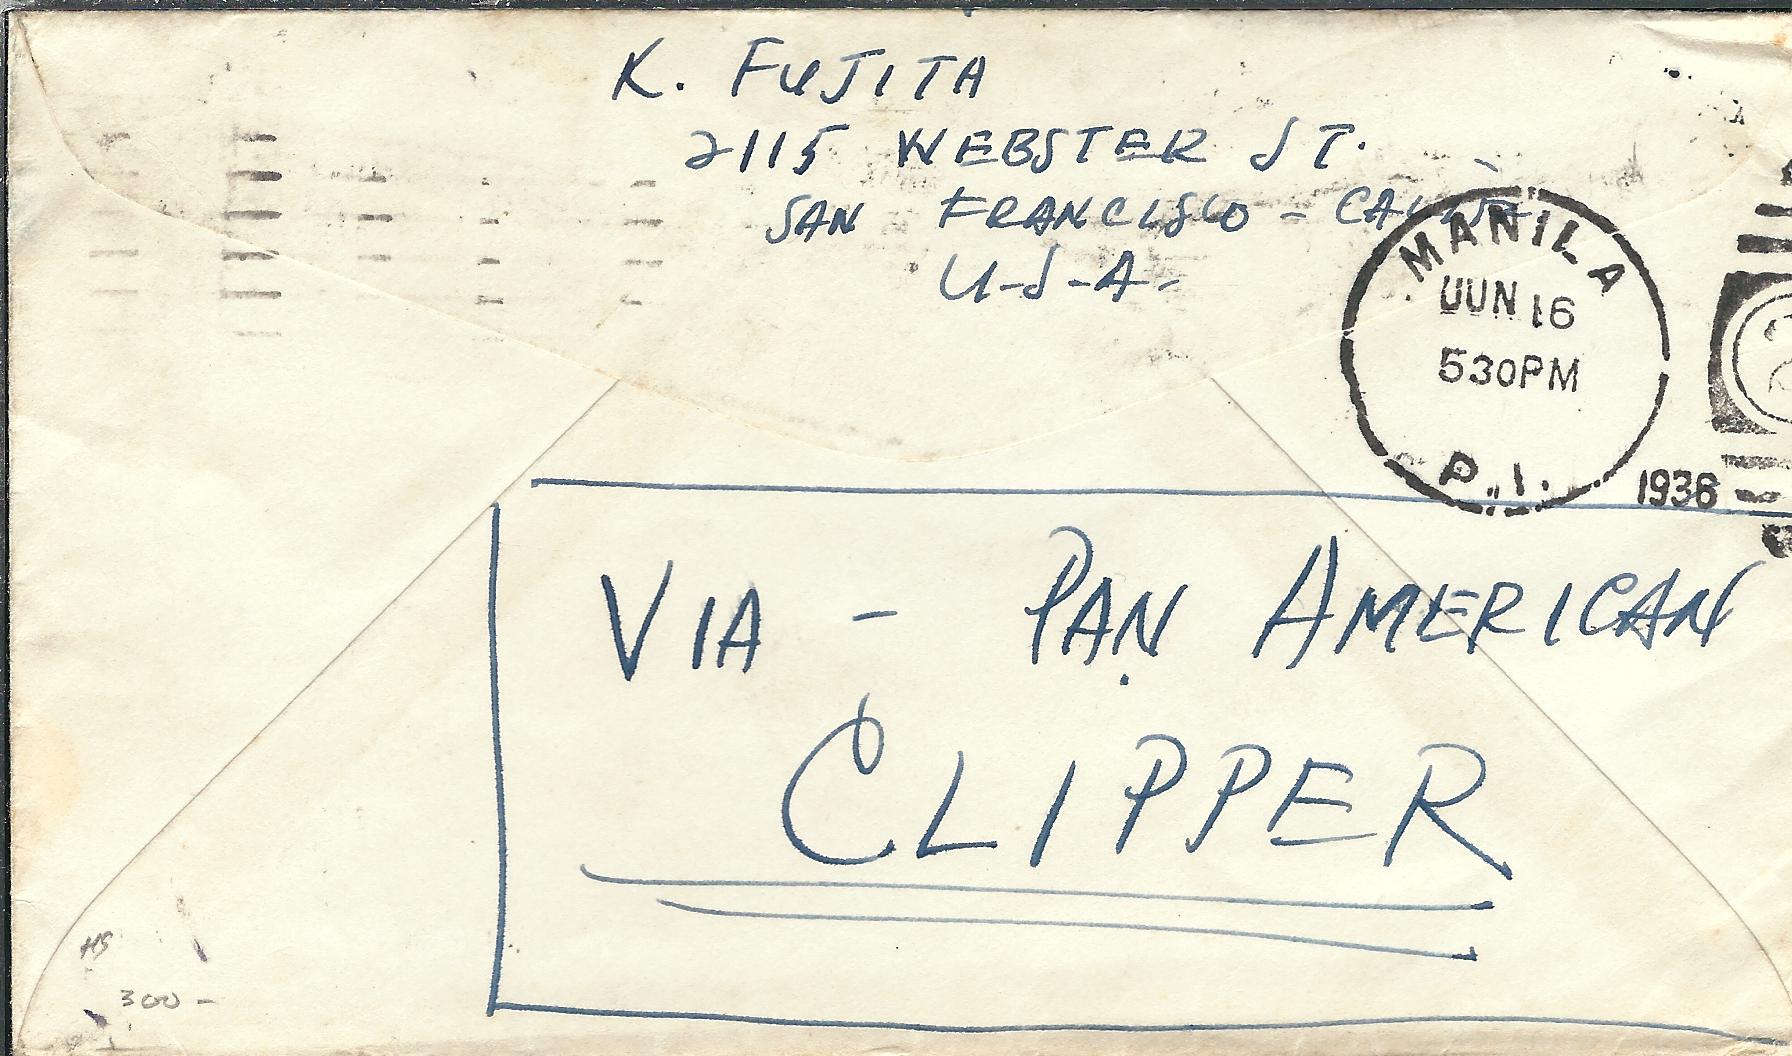 K. FUJITA
2115 WEBSTER ST.
SAN FRANCISCO - CALIF.
U-S-A-
MANILA
JUN 16
530PM
P.I.
1936
VIA - PAN AMERICAN
CLIPPER
HS
300-